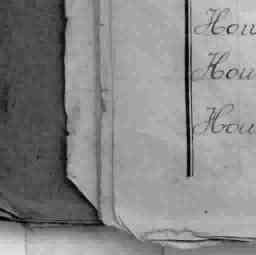 Hou
Hou
Hou